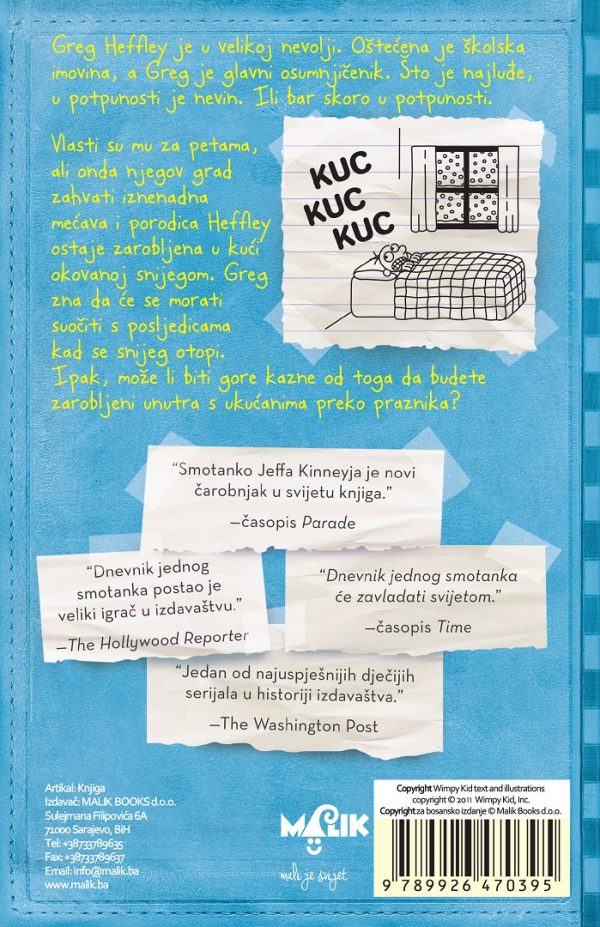 Greg Heffley je u velikoj nevolji. Oštećena je školska
imovina, a Greg je glavni osumnjičenik. Što je najluđe,
u potpunosti je nevin. Ili bar skoro u potpunosti.
Vlasti su mu za petama,
ali onda njegov grad
zahvati iznenadna
mećava i porodica Heffley
ostaje zarobljena u kući
okovanoj snijegom. Greg
zna da će se morati
suočiti s posljedicama
kad se snijeg otopi.
Ipak, može li biti gore kazne od toga da budete
zarobljeni unutra s ukućanima preko praznika?
KUC
KUC
KUC
“Smotanko Jeffa Kinneyja je novi
čarobnjak u svijetu knjiga.”
—časopis Parade
“Dnevnik jednog
smotanka postao je
veliki igrač u izdavaštvu.”
—The Hollywood Reporter
“Dnevnik jednog smotanka
će zavladati svijetom.”
—časopis Time
“Jedan od najuspješnijih dječijih
serijala u historiji izdavaštva.”
—The Washington Post
Artikal: Knjiga
Izdavač: MALIK BOOKS d.o.o.
Sulejmana Filipovića 6A
71000 Sarajevo, BiH
Tel: +38733789635
Fax: +38733789637
Email: info@malik.ba
www.malik.ba
MALIK
mali je svijet
Copyright Wimpy Kid text and illustrations
copyright © 2011 Wimpy Kid, Inc.
Copyright za bosansko izdanje © Malik Books d.o.o.
9 789926 470395